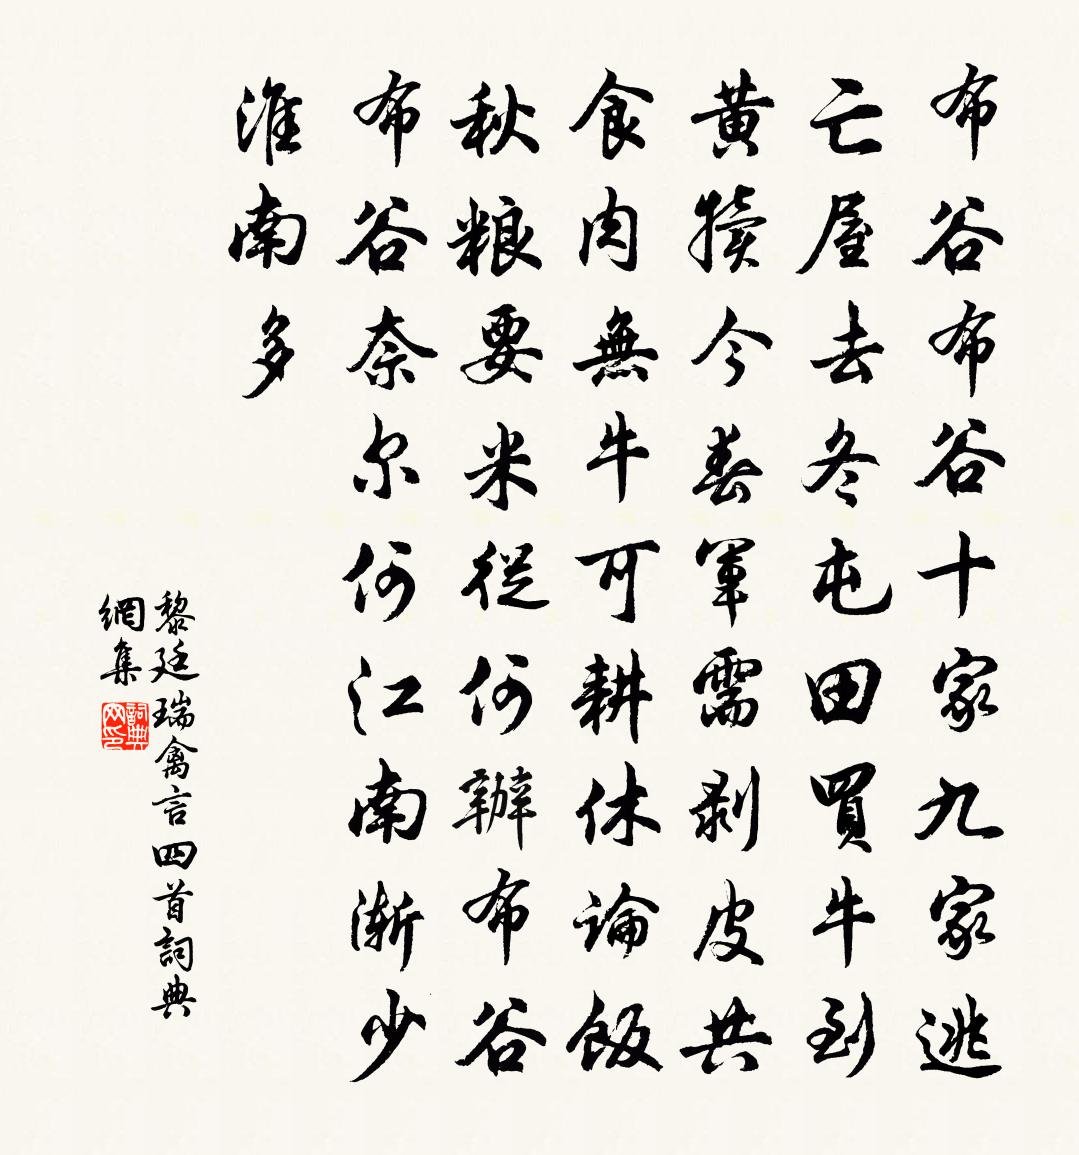 布谷布谷十家九家逃
亡屋去冬屯田買牛到
黄犢今春軍需剥皮共
食肉無牛可耕休論飯
秋粮要米從何辦布谷
布谷奈尔何江南渐少
淮南多
黎廷瑞禽言四首詞典
網集
詞典
网印